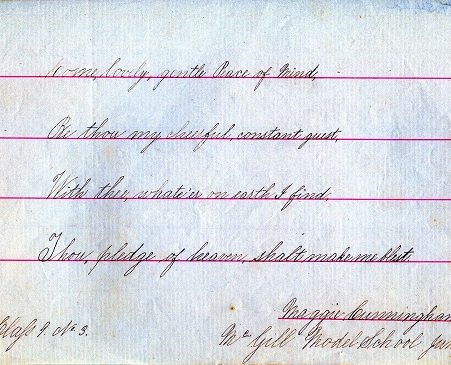 Come, lovely, gentle Peace of Mind,
Be thou my cheerful, constant guest,
With thee, whate'er on earth I find,
Thou, pledge of heaven, shalt make me blest.
Maggie Cunningham
Class 9. No. 3.
McGill Model School